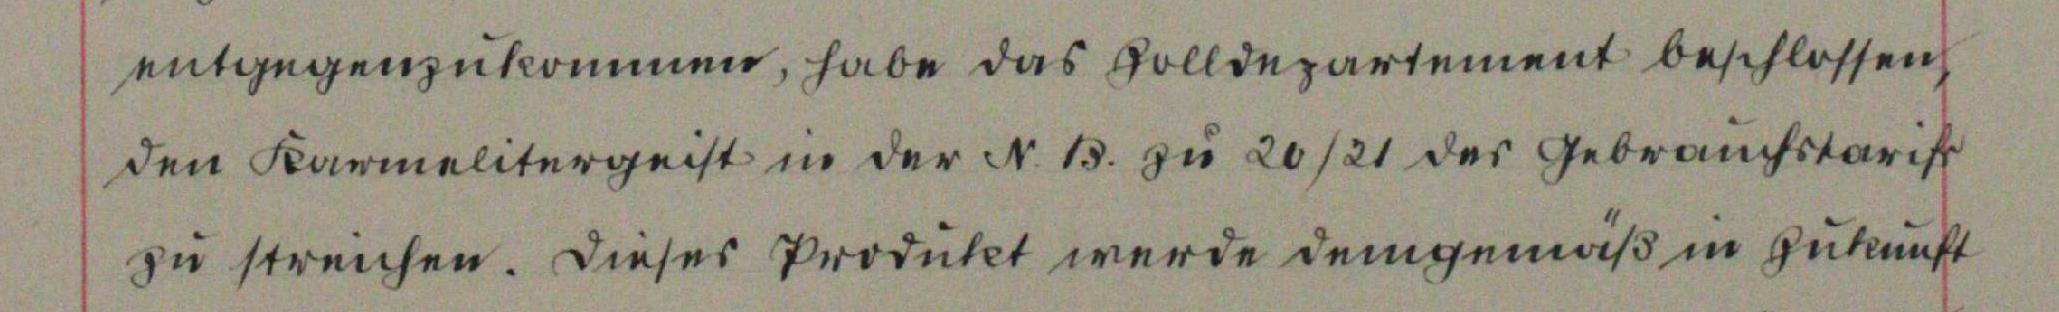 entgegenzukommen, habe das Zolldepartement beschlossen,
den Karmelitergeist in der N. B. zu 20/21 des Gebrauchstarifs
zu streichen. Dieses Produkt werde demgemäß in Zukunft